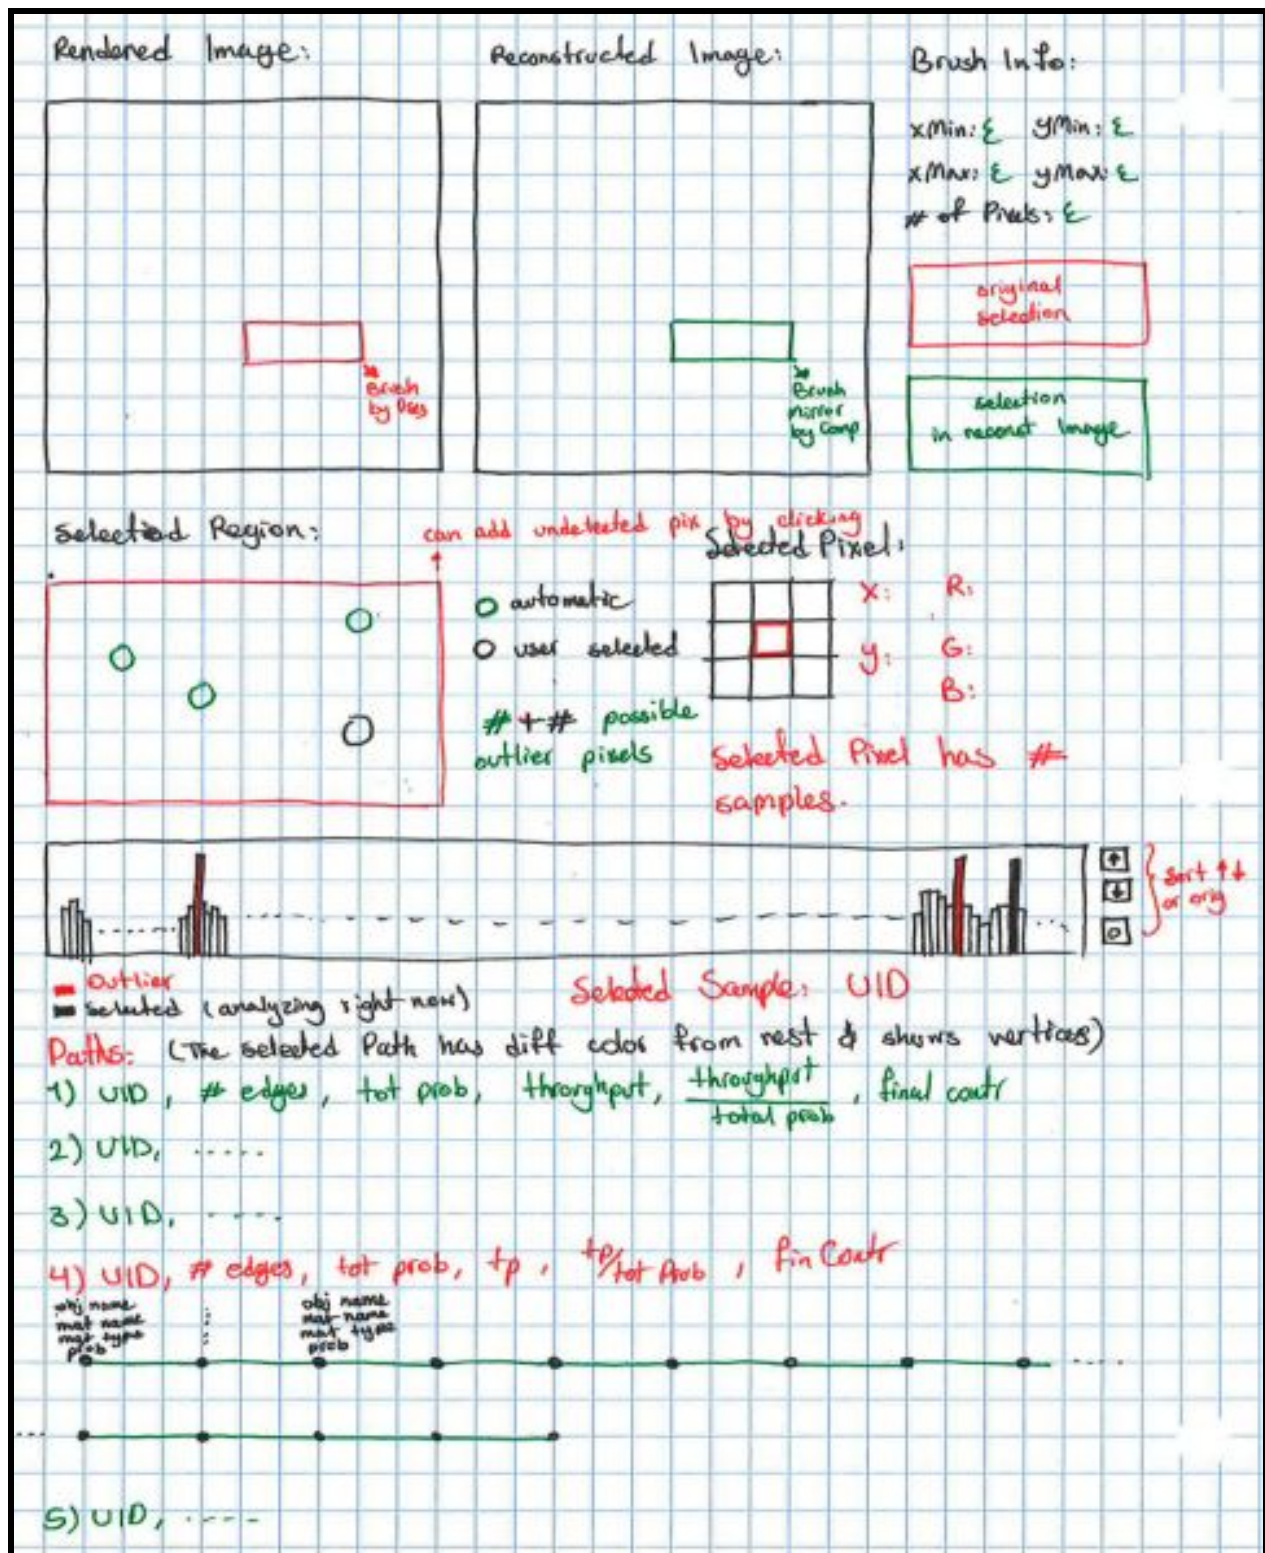 Rendered Image:
Reconstructed Image:
Brush Info:
xMin: ε yMin: ε
xMax: ε yMax: ε
# of Pixels: ε
original
selection
Brush
by User
Brush
mirror
by Comp
selection
in reconst Image
Selected Region:
can add undetected pix by clicking
Selected Pixel:
automatic
user selected
#+# possible
outlier pixels
X: R:
y: G:
B:
Selected Pixel has #
samples.
sort ↑↓
or orig
Outlier
Selected (analyzing right now)
Selected Sample: UID
Paths: (The selected Path has diff color from rest & shows vertices)
1) UID, # edges, tot prob, throughput, throughput / total prob, final contr
2) UID, .....
3) UID, ....
4) UID, # edges, tot prob, tp, tp/tot Prob, fin Contr
obj name
mat name
mat type
prob
obj name
mat name
mat type
prob
5) UID, ----